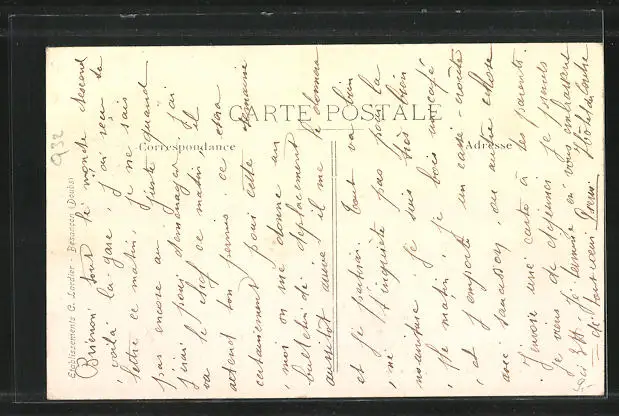 CARTE POSTALE
Correspondance
Adresse
Etablissements C. Lardier - Besançon (Doubs)
932
tout le monde descend
voilà la gare, j'ai reçu ta
lettre ce matin, je ne sais
pas encore au juste quand
j'irai pour déménager, j'ai
va le chef ce matin, il
attend ton permis ce sera
certainement pour cette semaine
moi on me donne un
bulletin de déplacement
aussitôt arrivé il me le donnera
et je partirai. Tout va bien
ne t'inquiète pas pour la
nourriture je suis très bien
le matin, je bois un café
et j'emporte un casse-croûte
avec saucisson ou autre chose
j'envoie une carte à tes parents.
je viens de déjeuner je prends
je termine en vous embrassant
de tout cœur